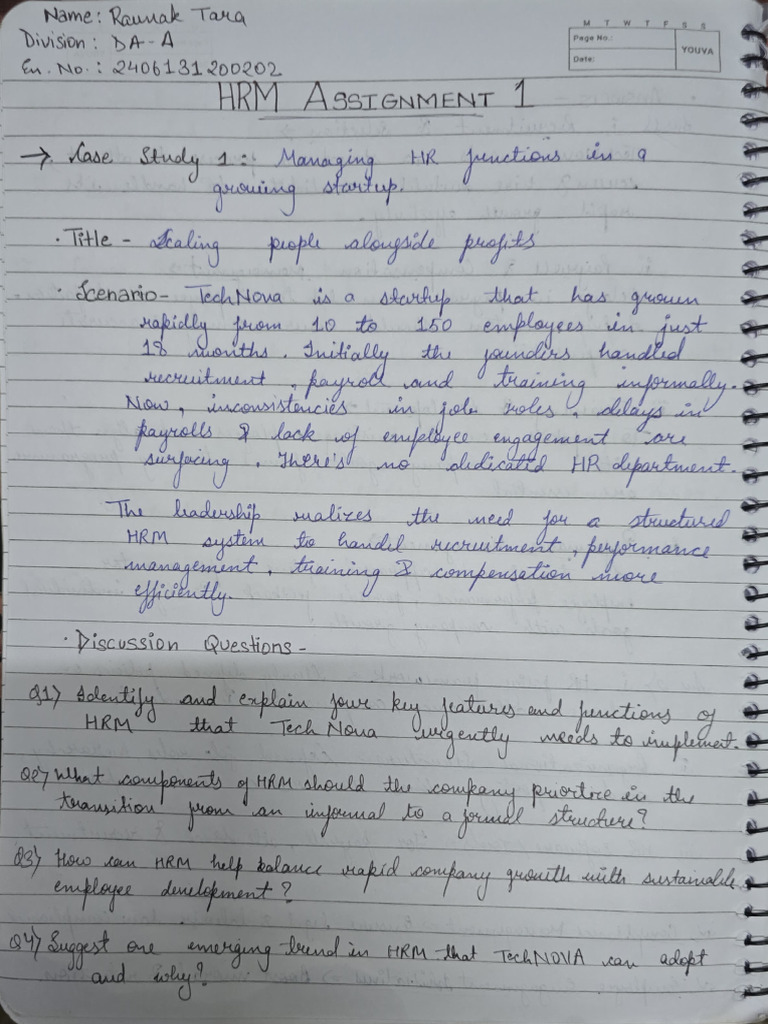 Name: Raunak Tara
Division: DA-A
En. No.: 2406131200202
M T W T F S S
Page No.:
Date:
YOUVA
HRM ASSIGNMENT 1
→ Case Study 1: Managing HR functions in a
growing startup.
· Title - Scaling people alongside profits
· Scenario - TechNova is a startup that has grown
rapidly from 10 to 150 employees in just
18 months. Initially the founders handled
recruitment, payroll and training informally.
Now, inconsistencies in job roles, delays in
payrolls & lack of employee engagement are
surfacing. There's no dedicated HR department.
The leadership realizes the need for a structured
HRM system to handel recruitment, performance
management, training & compensation more
efficiently.
· Discussion Questions -
Q1) Identify and explain four key features and functions of
HRM that Tech Nova urgently needs to implement.
Q2) What components of HRM should the company priortize in the
transition from an informal to a formal structure?
Q3) How can HRM help balance rapid company growth with sustainable
employee development?
Q4) Suggest one emerging trend in HRM that TechNOVA can adopt
and why?